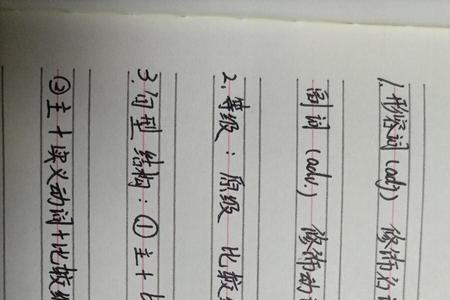 1.形容词(adj) 修饰名词
副词(adv.) 修饰动
2.等级:原级 比较
3.句型结构:①主+比
②主+实义动词+比较级